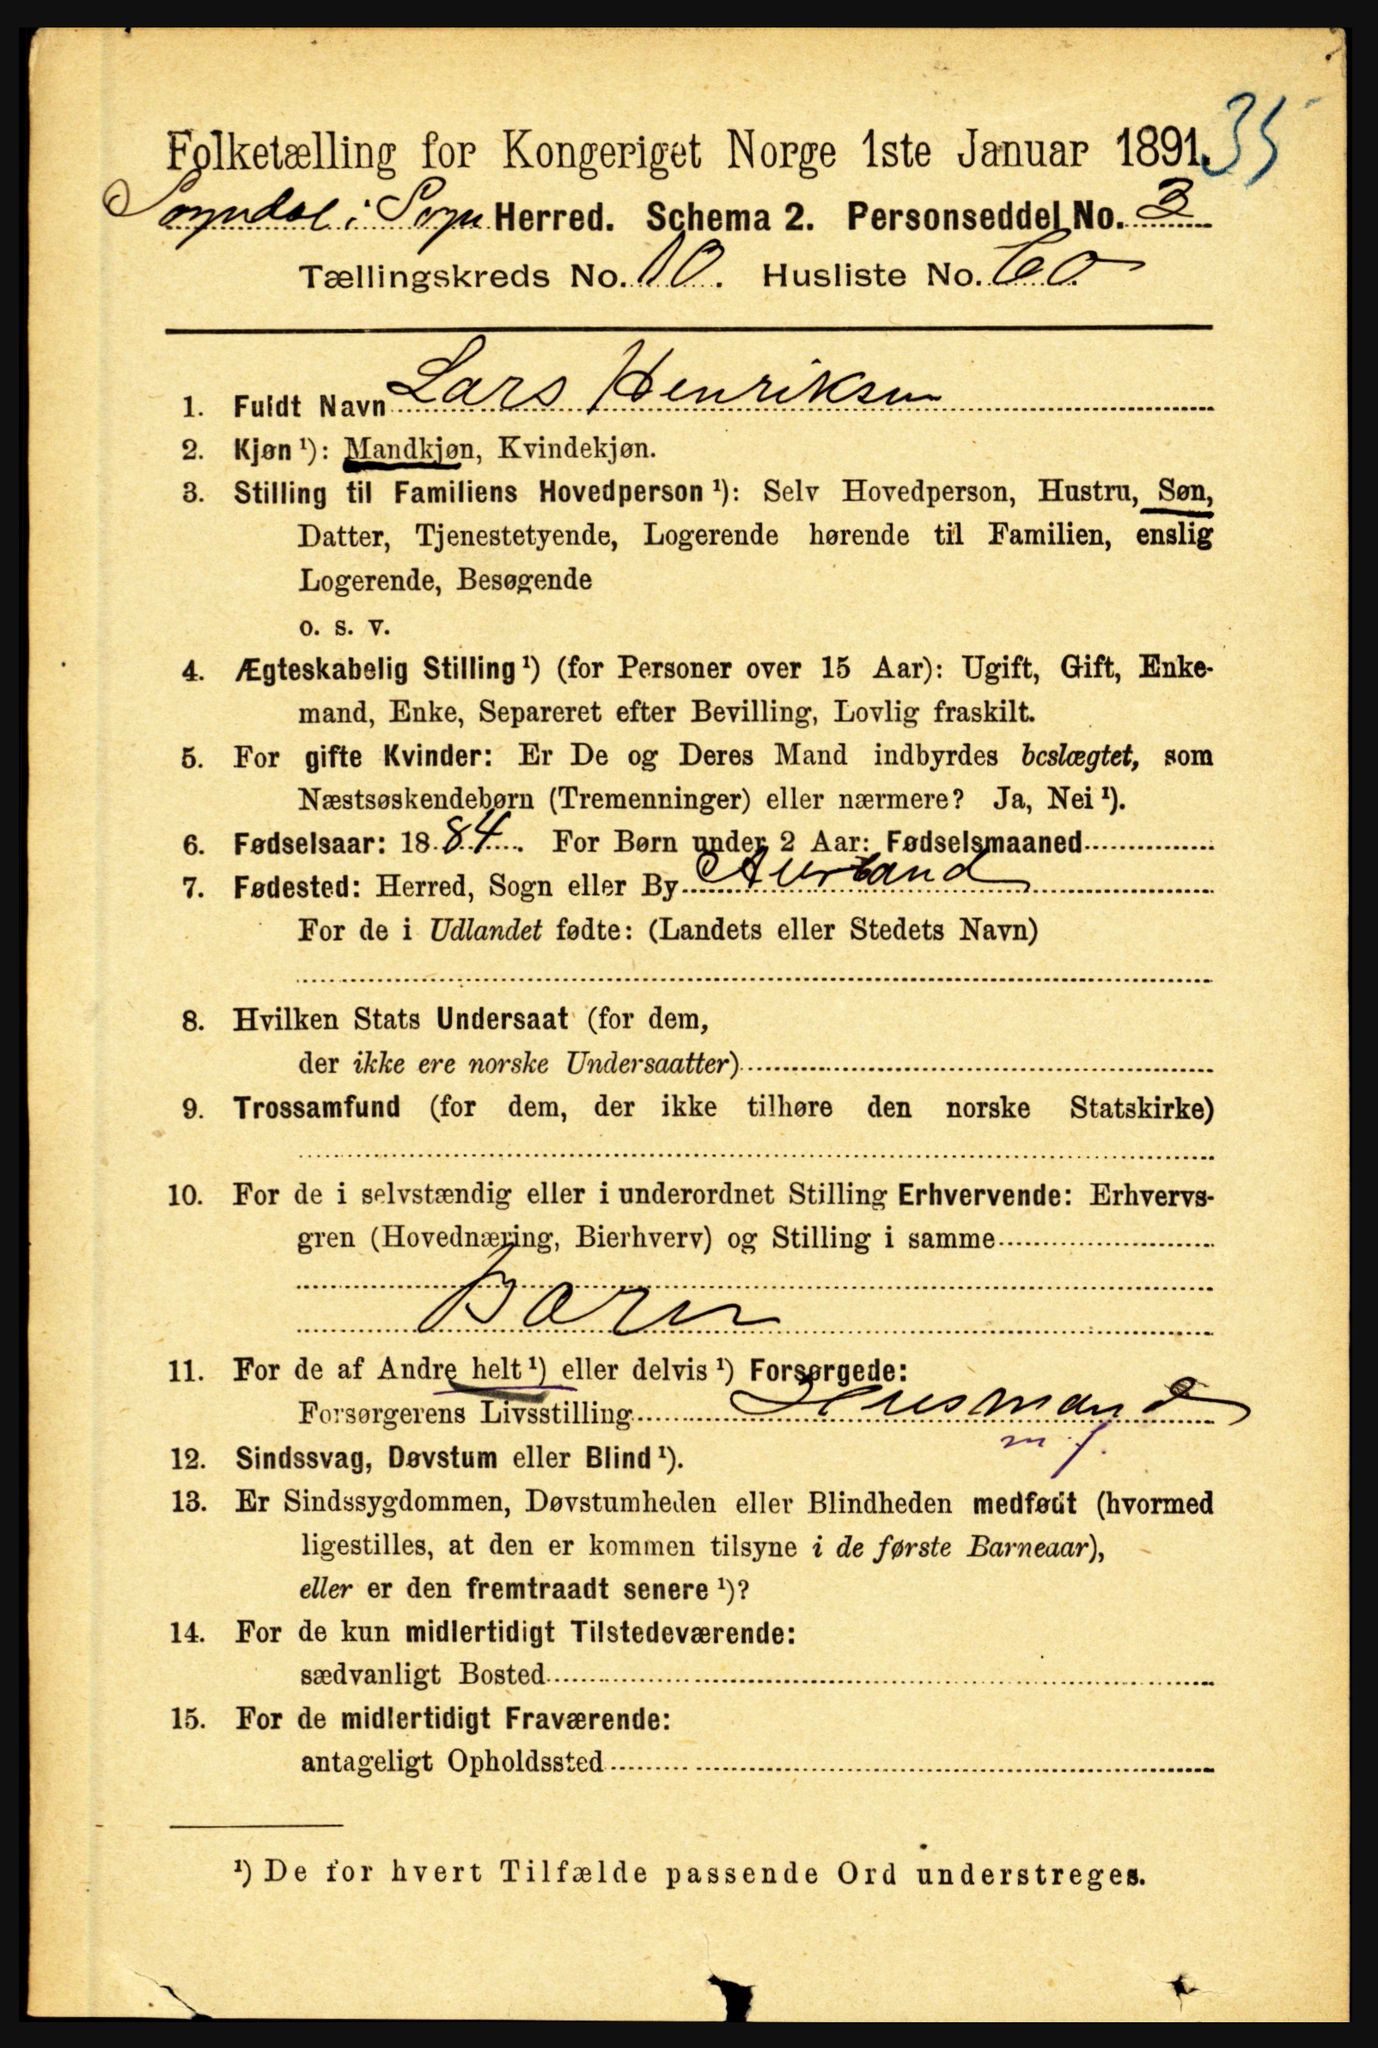 35
Folketælling for Kongeriget Norge 1ste Januar 1891.
Sogndal i Sogn Herred. Schema 2. Personseddel No. 3
Tællingskreds No. 10. Husliste No. 60.
1. Fuldt Navn Lars Henriksen
2. Kjøn ¹): Mandkjøn, Kvindekjøn.
3. Stilling til Familiens Hovedperson ¹): Selv Hovedperson, Hustru, Søn,
Datter, Tjenestetyende, Logerende hørende til Familien, enslig
Logerende, Besøgende
o. s. v.
4. Ægteskabelig Stilling ¹) (for Personer over 15 Aar): Ugift, Gift, Enke-
mand, Enke, Separeret efter Bevilling, Lovlig fraskilt.
5. For gifte Kvinder: Er De og Deres Mand indbyrdes beslægtet, som
Næstsøskendebørn (Tremenninger) eller nærmere? Ja, Nei ¹).
6. Fødselsaar: 1884. For Børn under 2 Aar: Fødselsmaaned
7. Fødested: Herred, Sogn eller By Aurland
For de i Udlandet fødte: (Landets eller Stedets Navn)
8. Hvilken Stats Undersaat (for dem,
der ikke ere norske Undersaatter)
9. Trossamfund (for dem, der ikke tilhøre den norske Statskirke)
10. For de i selvstændig eller i underordnet Stilling Erhvervende: Erhvervs-
gren (Hovednæring, Bierhverv) og Stilling i samme
Barn
11. For de af Andre helt ¹) eller delvis ¹) Forsørgede:
Forsørgerens Livsstilling Husmand
m. j.
12. Sindssvag, Døvstum eller Blind ¹).
13. Er Sindssygdommen, Døvstumheden eller Blindheden medfødt (hvormed
ligestilles, at den er kommen tilsyne i de første Barneaar),
eller er den fremtraadt senere ¹)?
14. For de kun midlertidigt Tilstedeværende:
sædvanligt Bosted
15. For de midlertidigt Fraværende:
antageligt Opholdssted
¹) De for hvert Tilfælde passende Ord understreges.